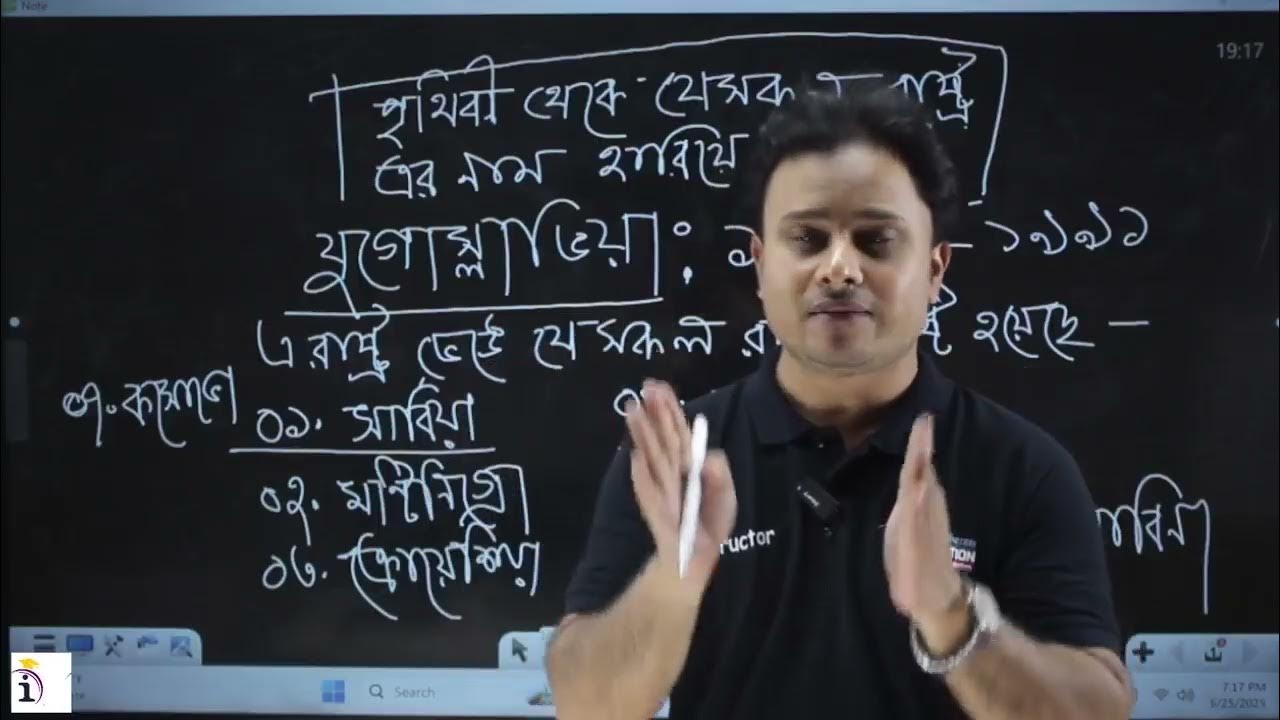 Note
19:17
পৃথিবী থেকে যেসকল রাষ্ট্র
এর নাম হারিয়ে
যুগোস্লাভিয়া: ১ – ১৯৯১
এ রাষ্ট্র ভেঙ্গে যেসকল হয়েছে –
০৭. কসোভো
০১. সার্বিয়া
০২. মন্টিনিগ্রো
০৩. ক্রোয়েশিয়া
Search
7:17 PM